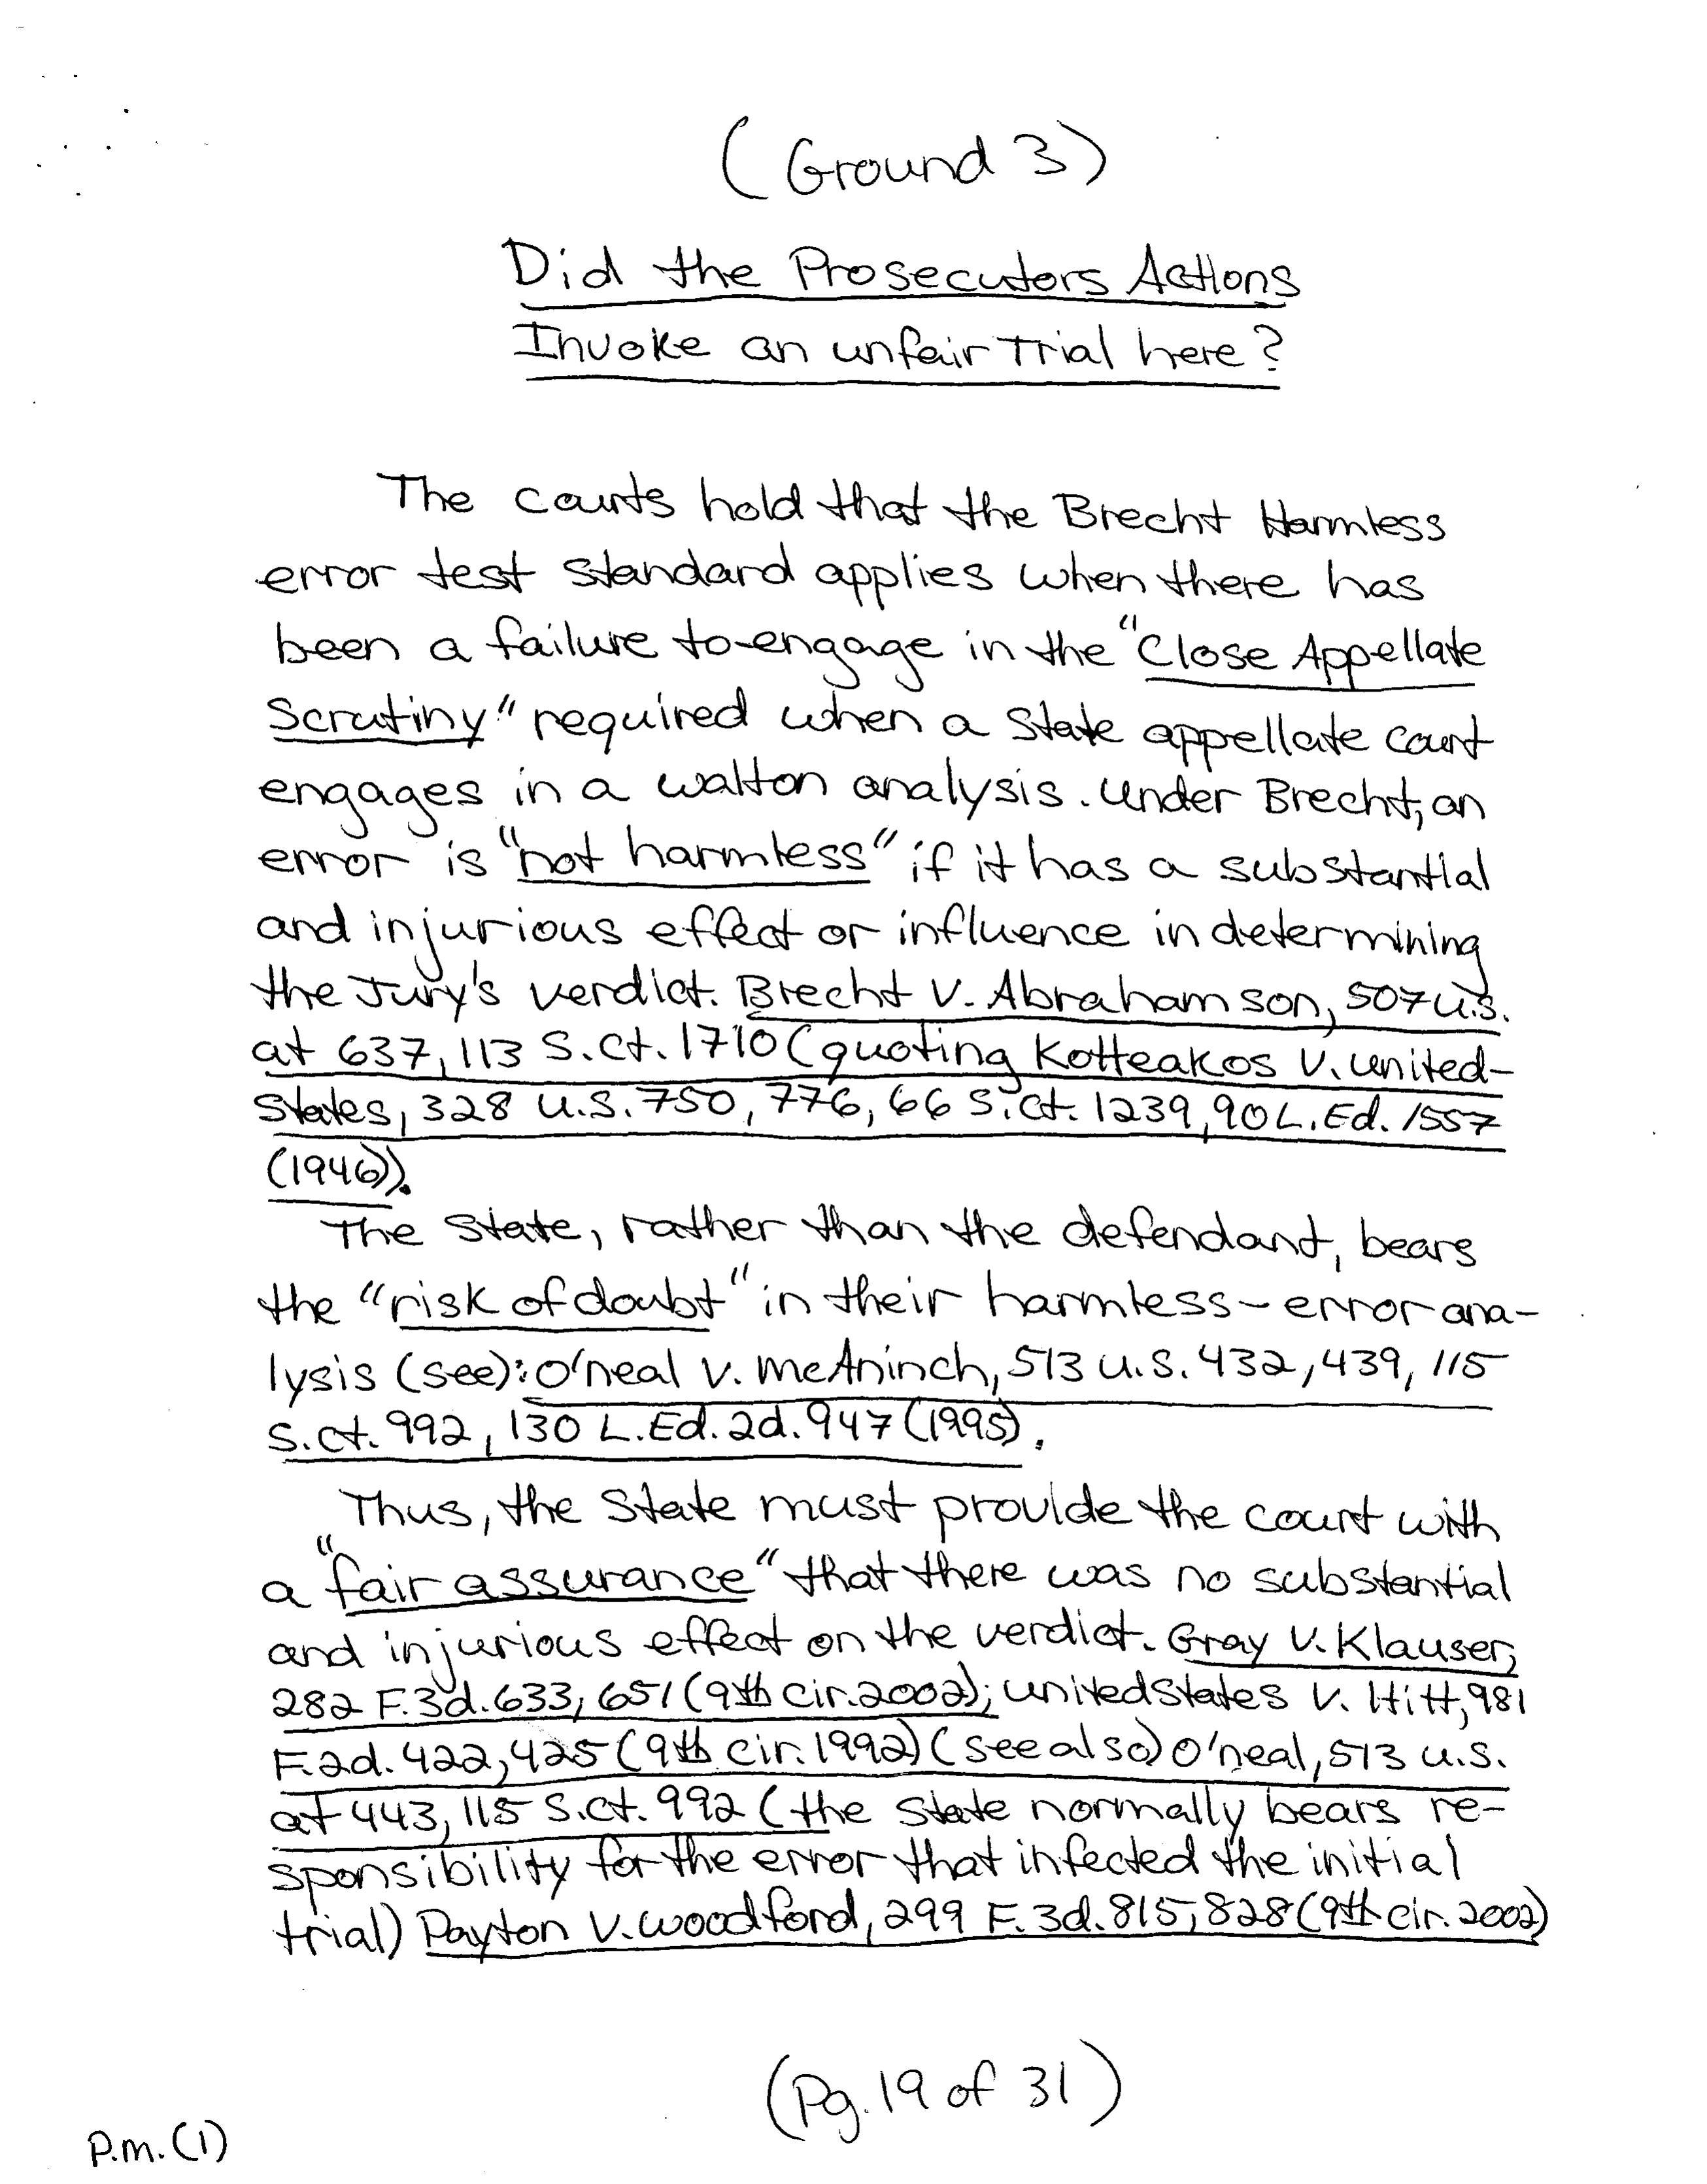 (Ground 3)
Did the Prosecutors Actions
Invoke an unfair Trial here?
The courts hold that the Brecht Harmless
error test standard applies when there has
been a failure to-engage in the "Close Appellate
Scrutiny" required when a State appellate court
engages in a walton analysis. Under Brecht, an
error is "not harmless" if it has a substantial
and injurious effect or influence in determining
the Jury's verdict. Brecht v. Abrahamson, 507 U.S.
at 637, 113 S.Ct. 1710 (quoting Kotteakos v. United-
States, 328 U.S. 750, 776, 66 S.Ct. 1239, 90 L.Ed. 1557
(1946)).
The State, rather than the defendant, bears
the "risk of doubt" in their harmless-error ana-
lysis (see): O'neal v. McAninch, 513 U.S. 432, 439, 115
S.Ct. 992, 130 L.Ed.2d. 947 (1995).
Thus, the State must provide the court with
a "fair assurance" that there was no substantial
and injurious effect on the verdict. Gray v. Klauser,
282 F.3d. 633, 651 (9th cir. 2002); United States v. Hitt, 981
F.2d. 422, 425 (9th cir. 1992) (see also) O'neal, 513 U.S.
at 443, 115 S.Ct. 992 (the State normally bears re-
sponsibility for the error that infected the initial
trial) Payton v. Woodford, 299 F.3d. 815, 828 (9th cir. 2002)
(Pg. 19 of 31)
P.m. (1)